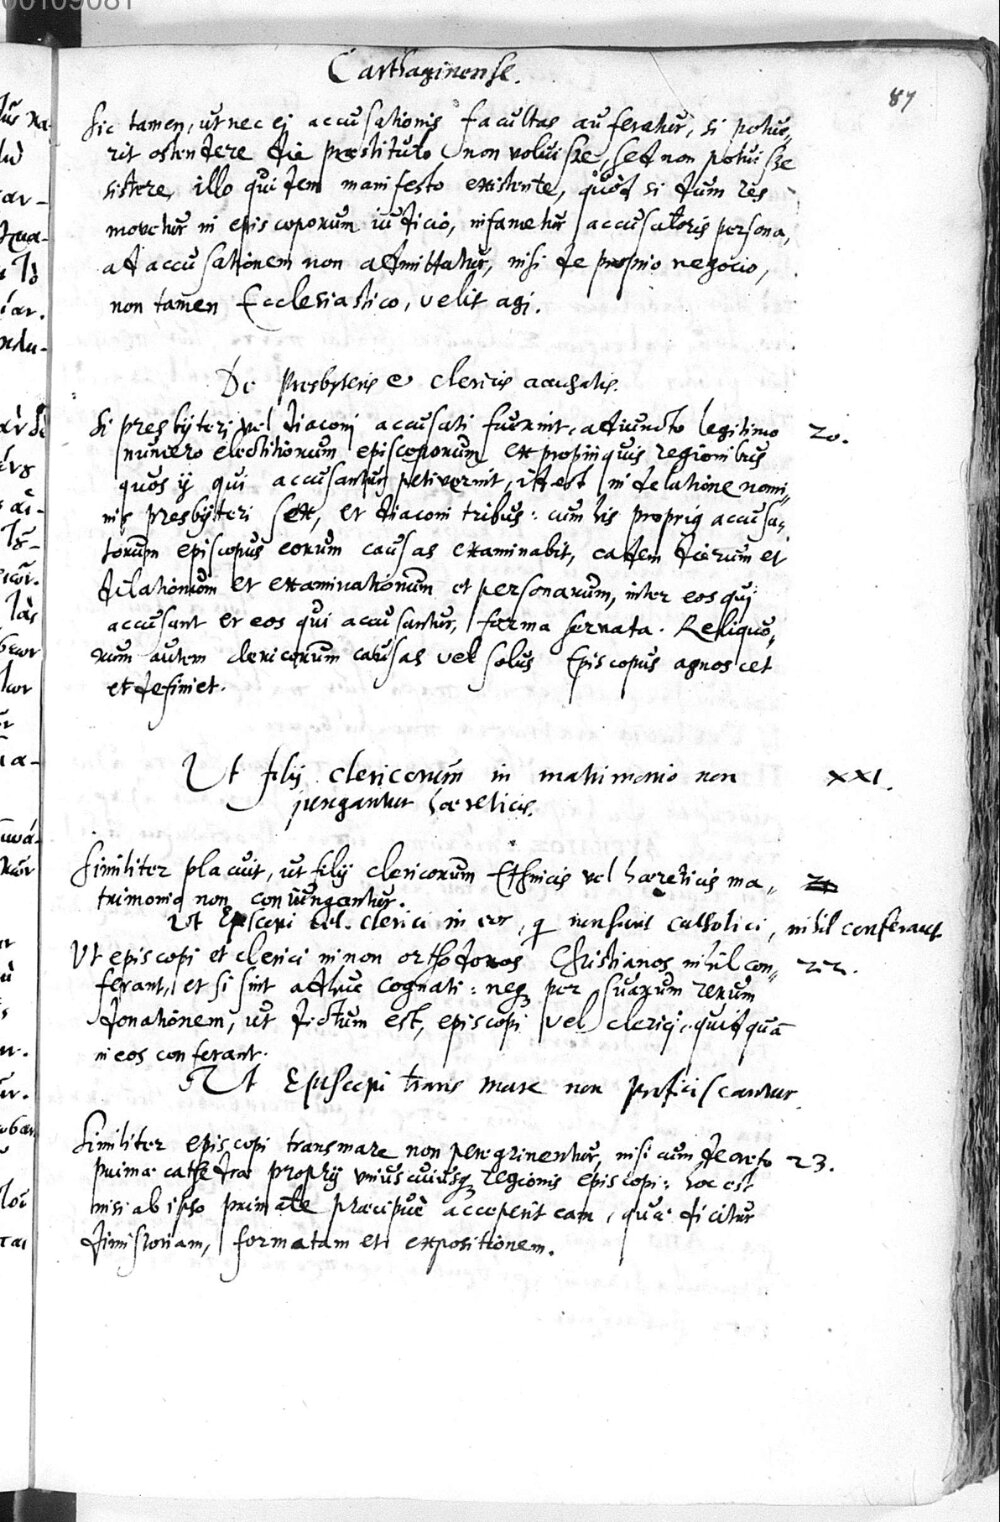 Carthaginense.
87
sic tamen, ut nec ej accusationis facultas auferatur, si potue,,
rit ostendere die præstituto non voluisse, sed non potuisse
sistere, illo quidem manifesto existente, quod si dum res
movetur in episcoporum iudicio, infametur accusatoris persona,
ad accusationem non admittatur, nisi de proprio negocio,
non tamen Ecclesiastico, velit agi.
De Presbyteris et clericis accusatis.
Si presbyterj vel diaconj accusati fuerint, adiuncto legitimo 20.
numero electitiorum episcoporum ex propinquis regionibus
quos ij qui accusantur petiverint, id est in delatione nomi,,
nis presbyteri sex, et diaconi tribus: cum his proprius accusa,,
torum episcopus eorum causas examinabit, eadem dierum et
dilationum et examinationum et personarum, inter eos qui
accusant et eos qui accusantur, forma servata. Reliquo,,
rum autem clericorum causas vel solus Episcopus agnoscet
et definiet.
Ut filij clericorum in matrimonio non XXI.
jungantur hæreticis.
Similiter placuit, ut filij clericorum Ethnicis vel hæreticis ma,,
trimonio non coniungantur.
Ut Episcopi vel clerici in eos, q non sunt catholici, nihil conferant
Ut episcopi et clerici in non orthodoxos Christianos nihil con,, 22.
ferant, et si sint adhuc cognati: neq per suarum rerum
donationem, ut dictum est, episcopi vel clericj, quidquã
in eos conferant.
Ut Episcopi trans mare non proficiscantur.
Similiter episcopi transmare non peregrinentur, nisi cum decreto 23.
primæ cathedræ proprij uniuscuiusq regionis episcopi: hoc est
nisi ab ipso primate præcipuè acceperit eam, quæ dicitur
dimissoriam, formatam et expositionem.